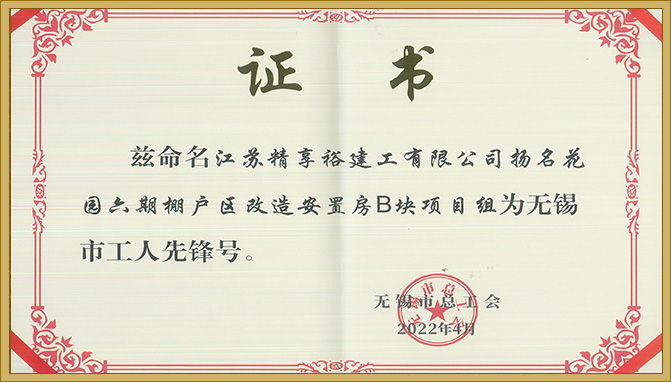 证 书
兹命名江苏精享裕建工有限公司扬名花
园六期棚户区改造安置房B块项目组为无锡
市工人先锋号。
无锡市总工会
无锡市总工会
2022年4月